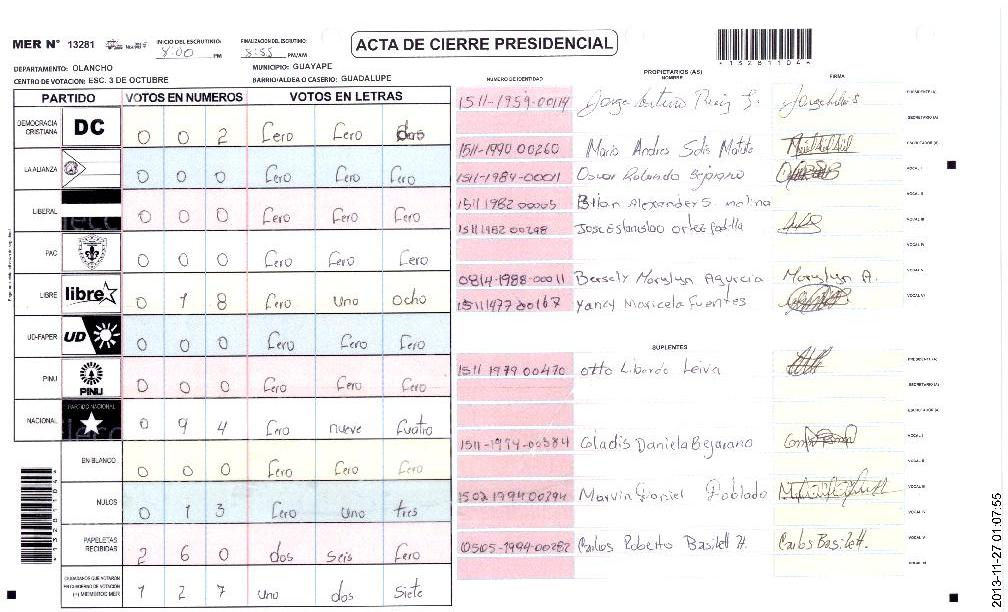 MER N° 13281 INICIO DEL ESCRUTINIO: 8:00 PM FINALIZACION DEL ESCRUTINIO: 8:55 PM/AM ACTA DE CIERRE PRESIDENCIAL
DEPARTAMENTO: OLANCHO MUNICIPIO: GUAYAPE
CENTRO DE VOTACION: ESC. 3 DE OCTUBRE BARRIO/ALDEA O CASERIO: GUADALUPE
PARTIDO VOTOS EN NUMEROS VOTOS EN LETRAS
DEMOCRACIA CRISTIANA DC 0 0 2 Cero Cero dos
LA ALIANZA 0 0 0 Cero Cero Cero
LIBERAL 0 0 0 Cero Cero Cero
PAC 0 0 0 Cero Cero Cero
LIBRE libre 0 1 8 Cero uno ocho
UD-FAPER UD 0 0 0 Cero Cero Cero
PINU PINU 0 0 0 Cero Cero Cero
NACIONAL PARTIDO NACIONAL 0 9 4 Cero nueve Cuatro
EN BLANCO 0 0 0 Cero Cero Cero
NULOS 0 1 3 Cero uno tres
PAPELETAS RECIBIDAS 2 6 0 dos seis Cero
CIUDADANOS QUE VOTARON EN CUADERNO DE VOTACION (+) MIEMBROS MER 1 2 7 uno dos siete
NUMERO DE IDENTIDAD PROPIETARIOS (AS) NOMBRE FIRMA
1511-1959-00114 Jorge Arturo Ruiz PRESIDENTE (A)
SECRETARIO (A)
1511-1990 00260 Mario Andres Solis ESCRUTADOR (A)
1511-1984-00011 Oscar Rolando Bejarano VOCAL I
1511 1982 00005 Brian Alexander S. molina VOCAL II
1511 1982 00298 Jose Estanislao Ortez padilla VOCAL III
VOCAL IV
0814-1988-00011 Bersely Marylyn Agurcia Marylyn A. VOCAL V
1511 1977 00167 Yancy Maricela Fuentes VOCAL VI
SUPLENTES
1511 1979 00470 Otto Libardo Leiva PRESIDENTE (A)
SECRETARIO (A)
ESCRUTADOR (A)
1511-1994-00384 Gladis Daniela Bejarano VOCAL I
VOCAL II
1502 1994 00294 Marvin Poblado VOCAL III
VOCAL IV
0505-1994-00282 Carlos Roberto Basilett H. Carlos Basilett. VOCAL V
VOCAL VI
2013-11-27 01:07:55